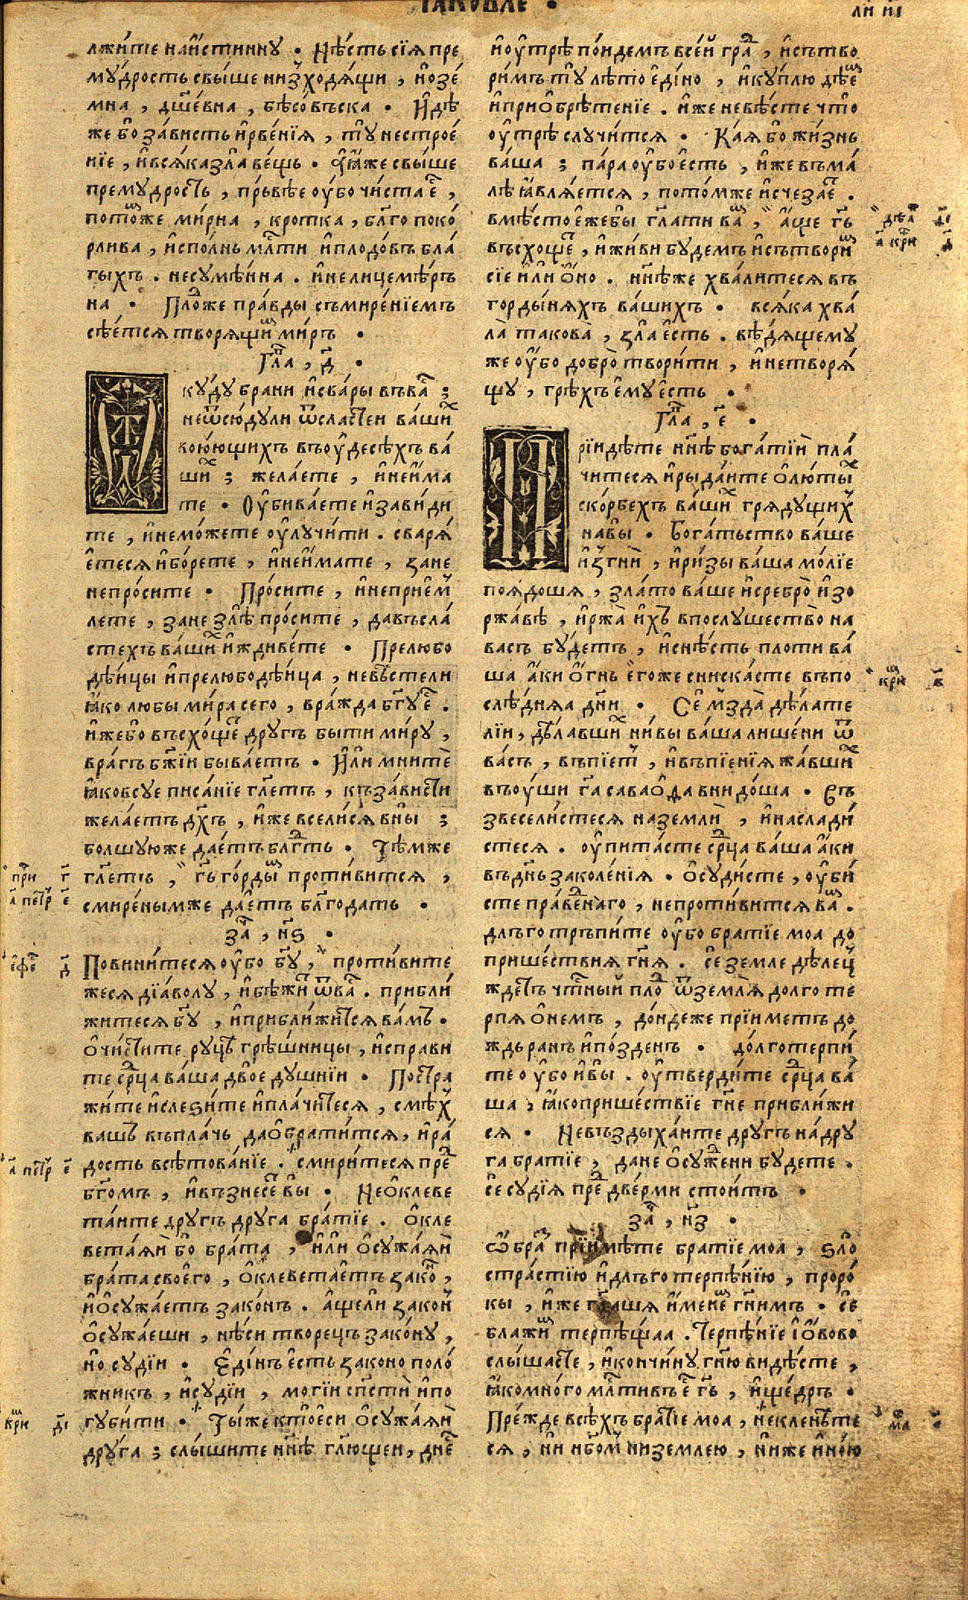 ІАКОВЛЕ ·
ли иі
лжите наистинну · Нѣсть сїя пре
мудрость свыше низходящи, но зе
мна, дш҃евна, бѣсовъска · Идѣ
же бо зависть ирвенїя, ту нестрое
нїе, ивсяка зла вещь · аꙗже свыше
премудрость, пръвѣе оубо чиста е҆,
потомже мирна, кротка, бл҃го поко
рлива, исполнь мл҃ти иплодовъ бла
гыхъ . несумѣнна . инелицемѣръ
на · Плоⷣже правды съмиренїемъ
сѣется творящиⷨ миръ ·
Гл҃а, д҃ ·
Ѿкуду брани исвары въваⷭ ;
неѿсюдули ѿсластеи вашиⷯ
воюющихъ въоудесѣхъ ва
шиⷯ ; желаете, инеима
те · Оубиваете изавиди
те, инеможете оулучити . сваря
етеся иборете, инеимате, зане
непросите · Просите, инеприем
лете, зане злѣ просите, давъсла
стехъ вашиⷯ иждивете · Прелюбо
дѣицы ипрелюбодѣица, невѣстели
ꙗко любы мира сего, вражда бг҃у е҆ .
ижебо въсхощеⷮ другъ быти миру,
врагъ бж҃іи бываетъ · Или мните
ꙗковсуе писанїе гл҃етъ, къзависти
желаетъ дх҃ъ, иже вселися вны ;
болшуюже даетъ блг҃ть · Тѣмже
гл҃етъ, гь҃ гордыⷨ противится,
смиренымже даетъ бл҃годать ·
заⷱ, нѕ҃ ·
Повинитеся оубо бг҃у, противите
жеся дїаволу, ибѣжиⷮ ѿваⷭ . прибли
житеся бг҃у, иприближится вамъ ·
очистите руцѣ грѣшницы, исправи
те срⷣца ваша двое душнїи · Постра
жите ислезите иплачитеся, смѣх
вашъ въплачь даобратится, ира
дость всѣтованїе . смиритеся преⷣ
бг҃омъ, ивъзнесеⷮ вы · Неоклеве
таите другъ друга братїе . окле
ветаяи бо брата, или осужаяи
брата своего, оклеветаетъ закоⷩ,
иосужаетъ законъ . ащели закон
осужаеши, нѣси творець закону,
но судїи · Единъ есть законо поло
жникъ, исудїи, могїи спⷭти ипо
губити · Тыже ктоеси осужаяи
друга ; слышите нн҃ѣ гл҃ющеи, днеⷭ
иоутрѣ поидемъ всеи граⷣ, исътво
римъ ту лѣто едїно, икуплю дѣеⷨ
иприобрѣтенїе . иже невѣсте что
оутрѣ случится · Кая бо жизнь
ваша ; пара оубо есть, иже въма
лѣ ꙗвляется, потомже исчезаеⷮ .
вмѣсто ежебы гл҃ати ваⷨ, аще гь҃
въсхощеⷮ, иживи будемъ исътвориⷨ
сїе или оно . нн҃ѣже хвалитеся въ
гордыняхъ вашихъ · всяка хва
ла такова, зла есть . вѣдящему
же оубо добро творити, инетворя
щу, грѣхъ ему есть ·
Гл҃а, е҃ ·
Прїидѣте нн҃ѣ богатїи пла
читеся ирыдаите олютыⷯ
скорбехъ вашиⷯ грядущих
навы · Богатьство ваше
изгни, иризы ваша молїе
поядоша, злато ваше исребро изо
ржавѣ, иржа ихъ впослушество на
васъ будетъ, иснѣсть плоти ва
ша аки огнь егоже снискасте въпо
слѣдняа дн҃и · Се мъзда дѣлате
лїи, дѣлавшиⷯ нивы ваша лишени ѿ
васъ, въпїетъ, ивъпїенїя жавшиⷯ
въоуши гⷭ҃а саваофа внидоша · Въ
звеселистеся наземли, инаслади
стеся . оупитасте срⷣца ваша аки
въднь заколенїя · Осудисте, оуби
сте праведнаго, непротивится ваⷨ .
длъготръпите оубо братїе моа до
пришествия гн҃я . се земледѣлец
ждетъ чтⷭный плоⷣ ѿземля долго те
рпя онемъ, дондеже прїиметъ до
ждь ранъ ипозденъ · долготерпи
те оубо ивы . оутвердите срⷣца ва
ша, ꙗкопришествїе гн҃е приближи
ся · Невъздыхаите другъ надру
га братїе, дане осужени будете .
се судїя преⷣ двѣрми стоитъ ·
заⷱ, нз҃ ·
Ѡбраⷥ прїимѣте братїе моа, ѕло
страстїю идлъготерпѣнїю, проро
кы, иже гл҃аша именеⷨ гн҃имъ · се
блажиⷨ терпѣщаа . Терпѣнїе їововo
слышасте, икончину гн҃ю видѣсте,
ꙗкомного мл҃тивъ е҆ гь҃, ищедръ ·
Прежде всѣхъ братїе моа, некленѣте
ся, ни нб҃омъ ни землею, ниже иною
при г҃
а҃ петр е҃
ефеⷭ д҃
а҃ петр е҃
кри
дѣа
а҃ кри д҃
кри в҃
маⷴ